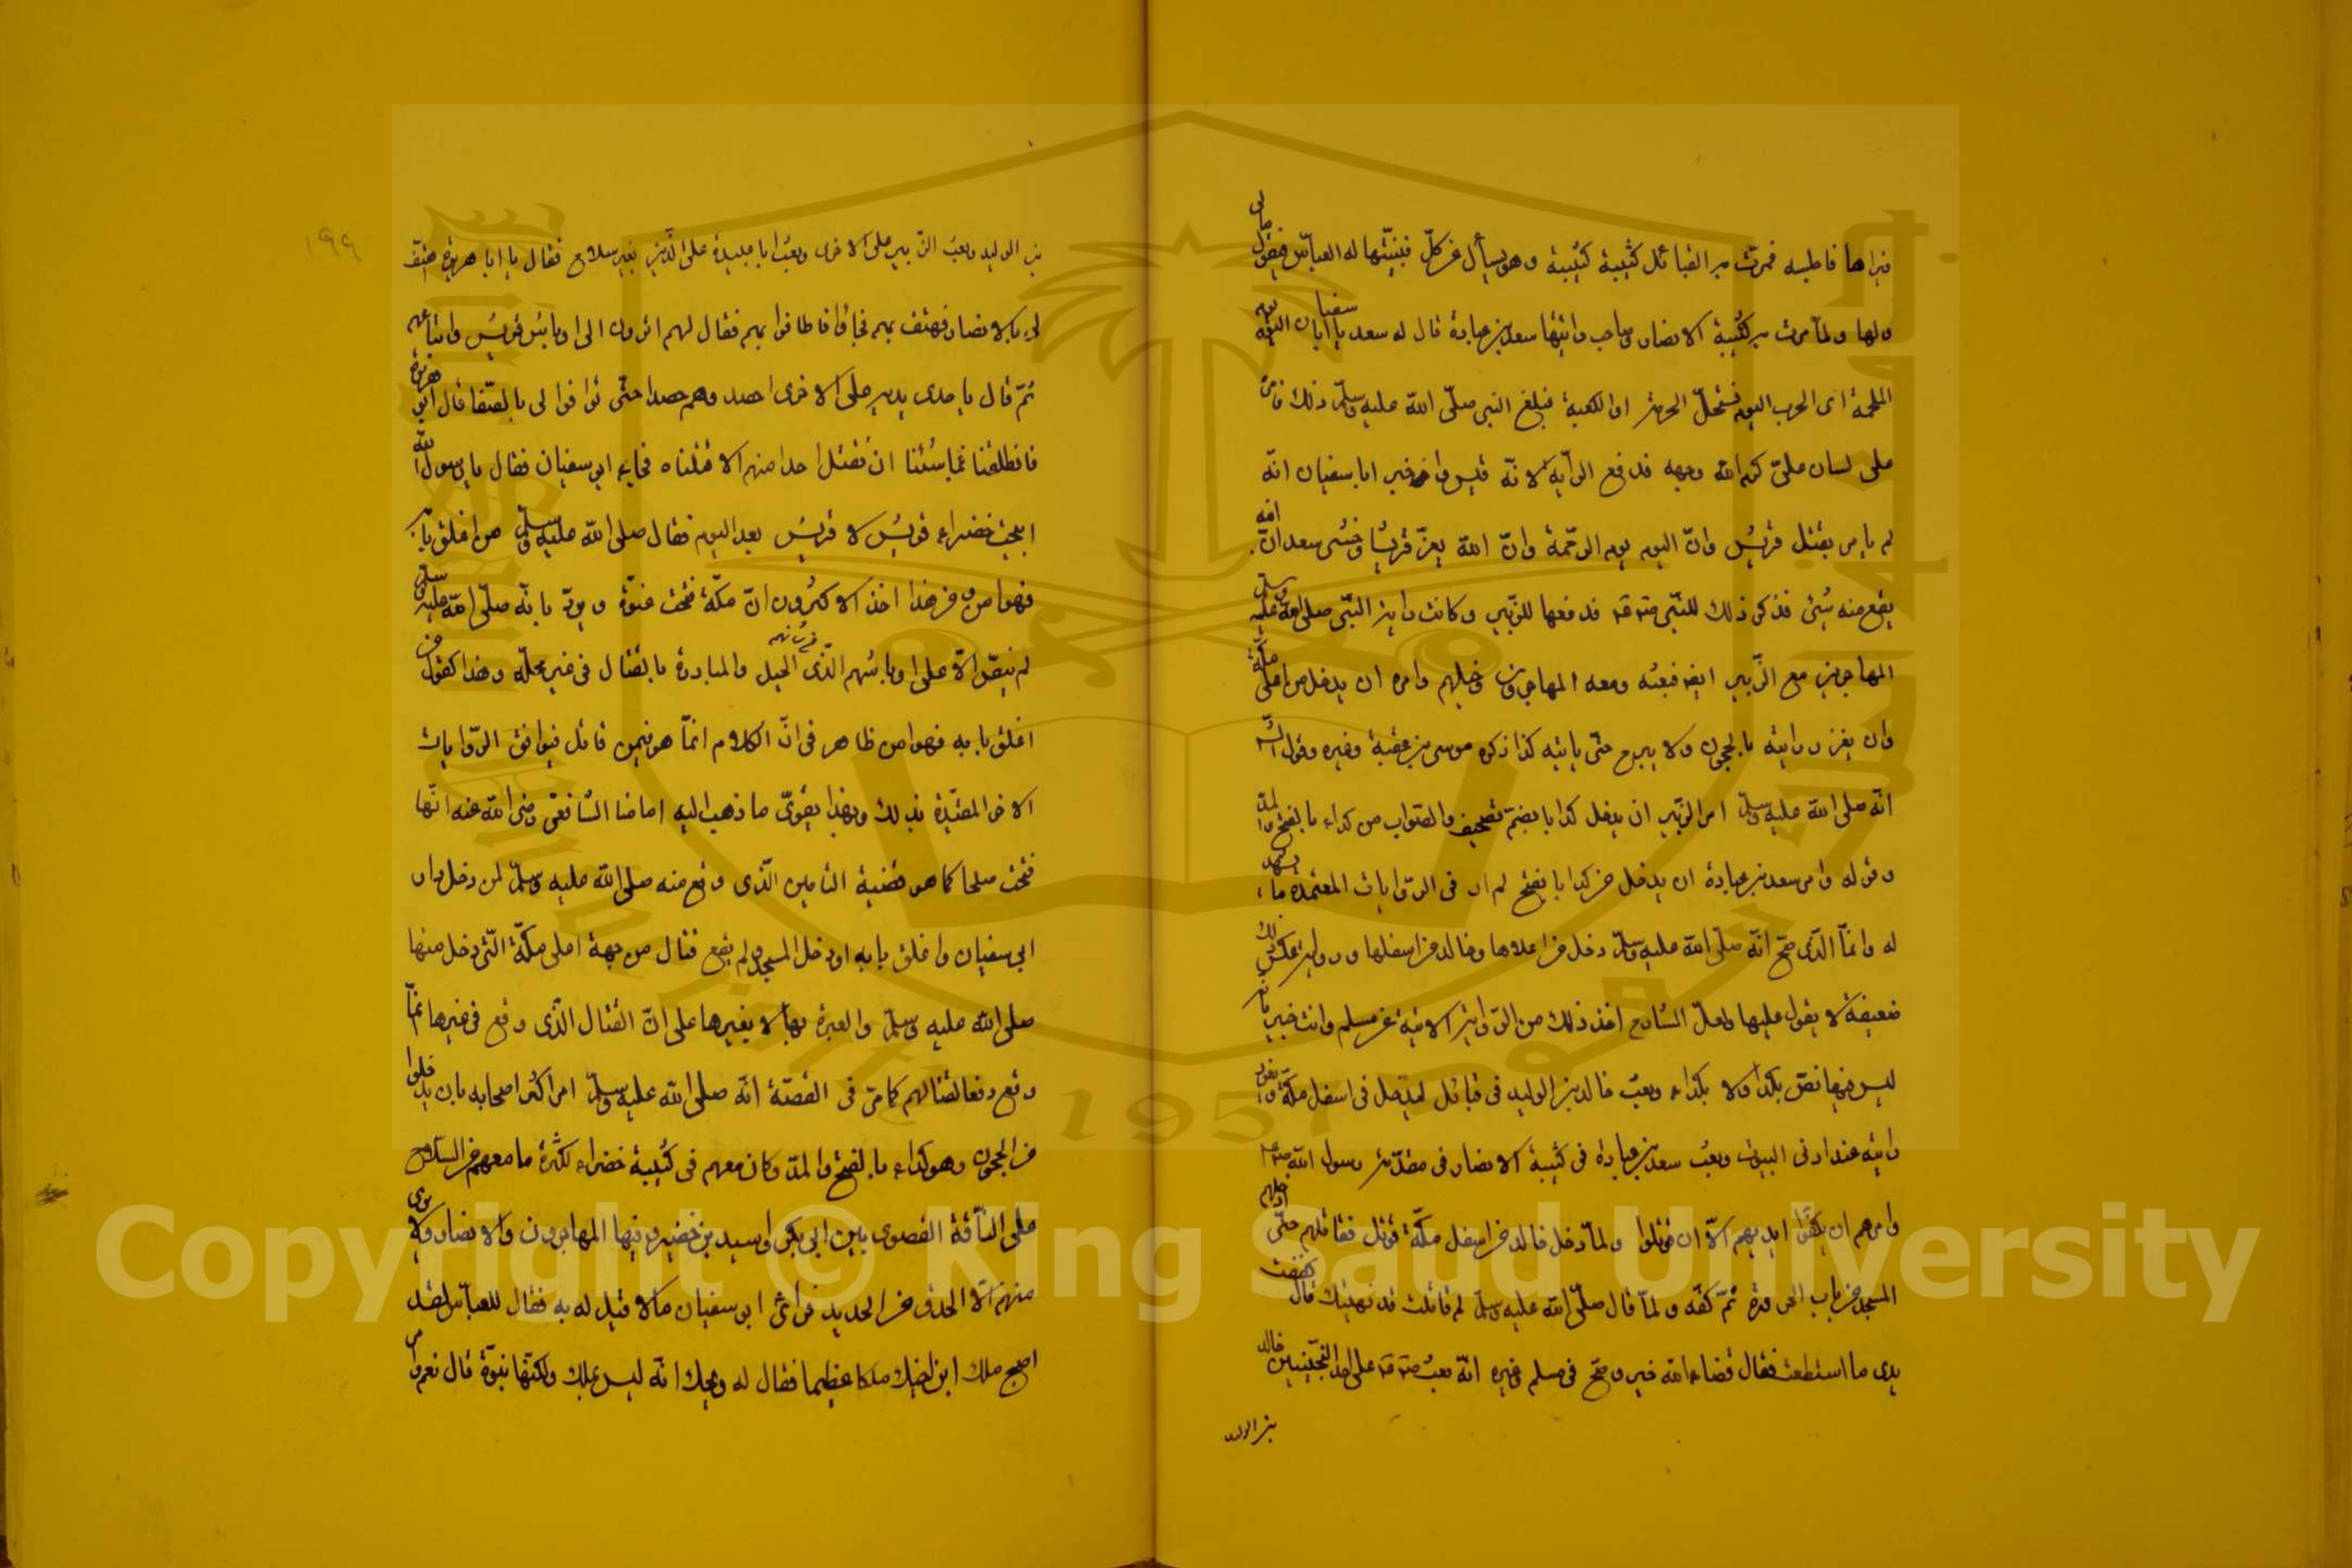 فيراها فاجلسه فمرت به القبائل كتيبة كتيبة وهو يسأل عن كل فيبينها له العباس فيقول مالى
ولها ولما مرت به كتيبة الانصار وصاحب رايتها سعد بن عبادة قال له سعد يا ابا سفيان اليوم يوم
الملحمة اى الحرب اليوم تستحل الحرمة او الكعبة فبلغ النبي صلى الله عليه وسلم ذلك
على لسان على كرم الله وجهه فدفع الراية لابنه قيس واخبر ابا سفيان انه
لم يامر بقتل قريش وان اليوم يوم الرحمة وان الله يعز قريشا وخشى سعد ان ابنه
يقع منه شئ فذكر ذلك للنبى فدفعها للزبير وكانت راية النبى صلى الله عليه وسلم
المهاجرين مع الزبير ايضا فبعثه ومعه المهاجرون وخيلهم وامره ان يدخل من اعلى مكة
وان يغرز رايته بالحجون ولا يبرح حتى ياتيه كذا ذكره موسى بن عقبة وغيره وقول
انه صلى الله عليه وسلم امر الزبير ان يدخل كدا بالضم تصحيف والصواب من كداء بالفتح والمد
وقوله وامر سعد بن عبادة ان يدخل من كدا بالفتح لم ار فى الروايات المعتمدة ما يشهد
له وانما الذى صح انه صلى الله عليه وسلم دخل من اعلاها وخالد من اسفلها ورواية عكس ذلك
ضعيفة لا يعول عليها ولعل الشارح اخذ ذلك من الرواية الاتية عن مسلم وانت خبير بانه
ليس فيها نص بكدا ولا بكداء وبعث خالد بن الوليد فى قبائل ليدخل فى اسفل مكة و يغرز
رايته عند ادنى البيوت وبعث سعد بن عبادة فى كتيبة الانصار فى مقدمة رسول الله
وامرهم ان يكفوا ايديهم الا ان قوتلوا ولما دخل خالد من اسفل مكة قوتل فقاتلهم حتى ادخلهم
المسجد من باب الحزورة ثم كفه ولما قال صلى الله عليه وسلم لم قاتلت قد نهيتك قال كففت
يدى ما استطعت فقال قضاء الله خير وصح فى مسلم وغيره انه بعث على احد المجنبتين خالد
بن الوليد
١٩٩
بن الوليد وبعث الزبير على الاخرى وبعث ابا عبيدة على الذين بغير سلاح فقال يا ابا هريرة اهتف
لى بالانصار فهتف بهم فجاؤا فاطافوا بهم فقال لهم اترون الى اوباش قريش واتباعهم
ثم قال باحدى يديه على الاخرى احصدوهم حصدا حتى توافوا لى بالصفا قال ابو هريرة
فانطلقنا فما شئنا ان نقتل احدا منهم الا قتلناه فجاءه ابو سفيان فقال يا رسول الله
ابيحت خضراء قريش لا قريش بعد اليوم فقال صلى الله عليه وسلم من اغلق بابه
فهو امن ومن هذا اخذ الاكثرون ان مكة فتحت عنوة ويرد بانه صلى الله عليه وسلم
لم ينص الا على اوباشهم الذى شانهم الحيل والمبادرة بالقتال فى غير محله وهذا كقوله من
اغلق بابه فهو امن ظاهر فى ان الكلام انما هو فيمن قاتل فيوافق الروايات
الاخر المقيدة بذلك وبهذا يقوى ما ذهب اليه امامنا الشافعى رضى الله عنه انها
فتحت صلحا كما هو قضية التامين الذى وقع منه صلى الله عليه وسلم لمن دخل دار
ابى سفيان واغلق بابه او دخل المسجد ولم يقع قتال من جهة اعلى مكة التى دخل منها
صلى الله عليه وسلم والعبرة بها لا بغيرها على ان القتال الذى وقع فى غيرها انما
وقع دفعا لقتالهم كما مر فى القصة انه صلى الله عليه وسلم امر اكثر اصحابه بان يدخلوا
من الحجون وهو كداء بالفتح والمد وكان معهم فى كتيبة خضراء لكثرة ما معهم من السلاح
على الناقة القصوى بين ابى بكر واسيد بن حضير وفيها المهاجرون والانصار ولا يرى
منهم الا الحدق من الحديد فراى ابو سفيان ما لا قبل له به فقال للعباس لقد
اصبح ملك ابن اخيك ملكا عظيما فقال له ويحك انه ليس بملك ولكنها نبوة قال نعم
Copyright © King Saud University
1957